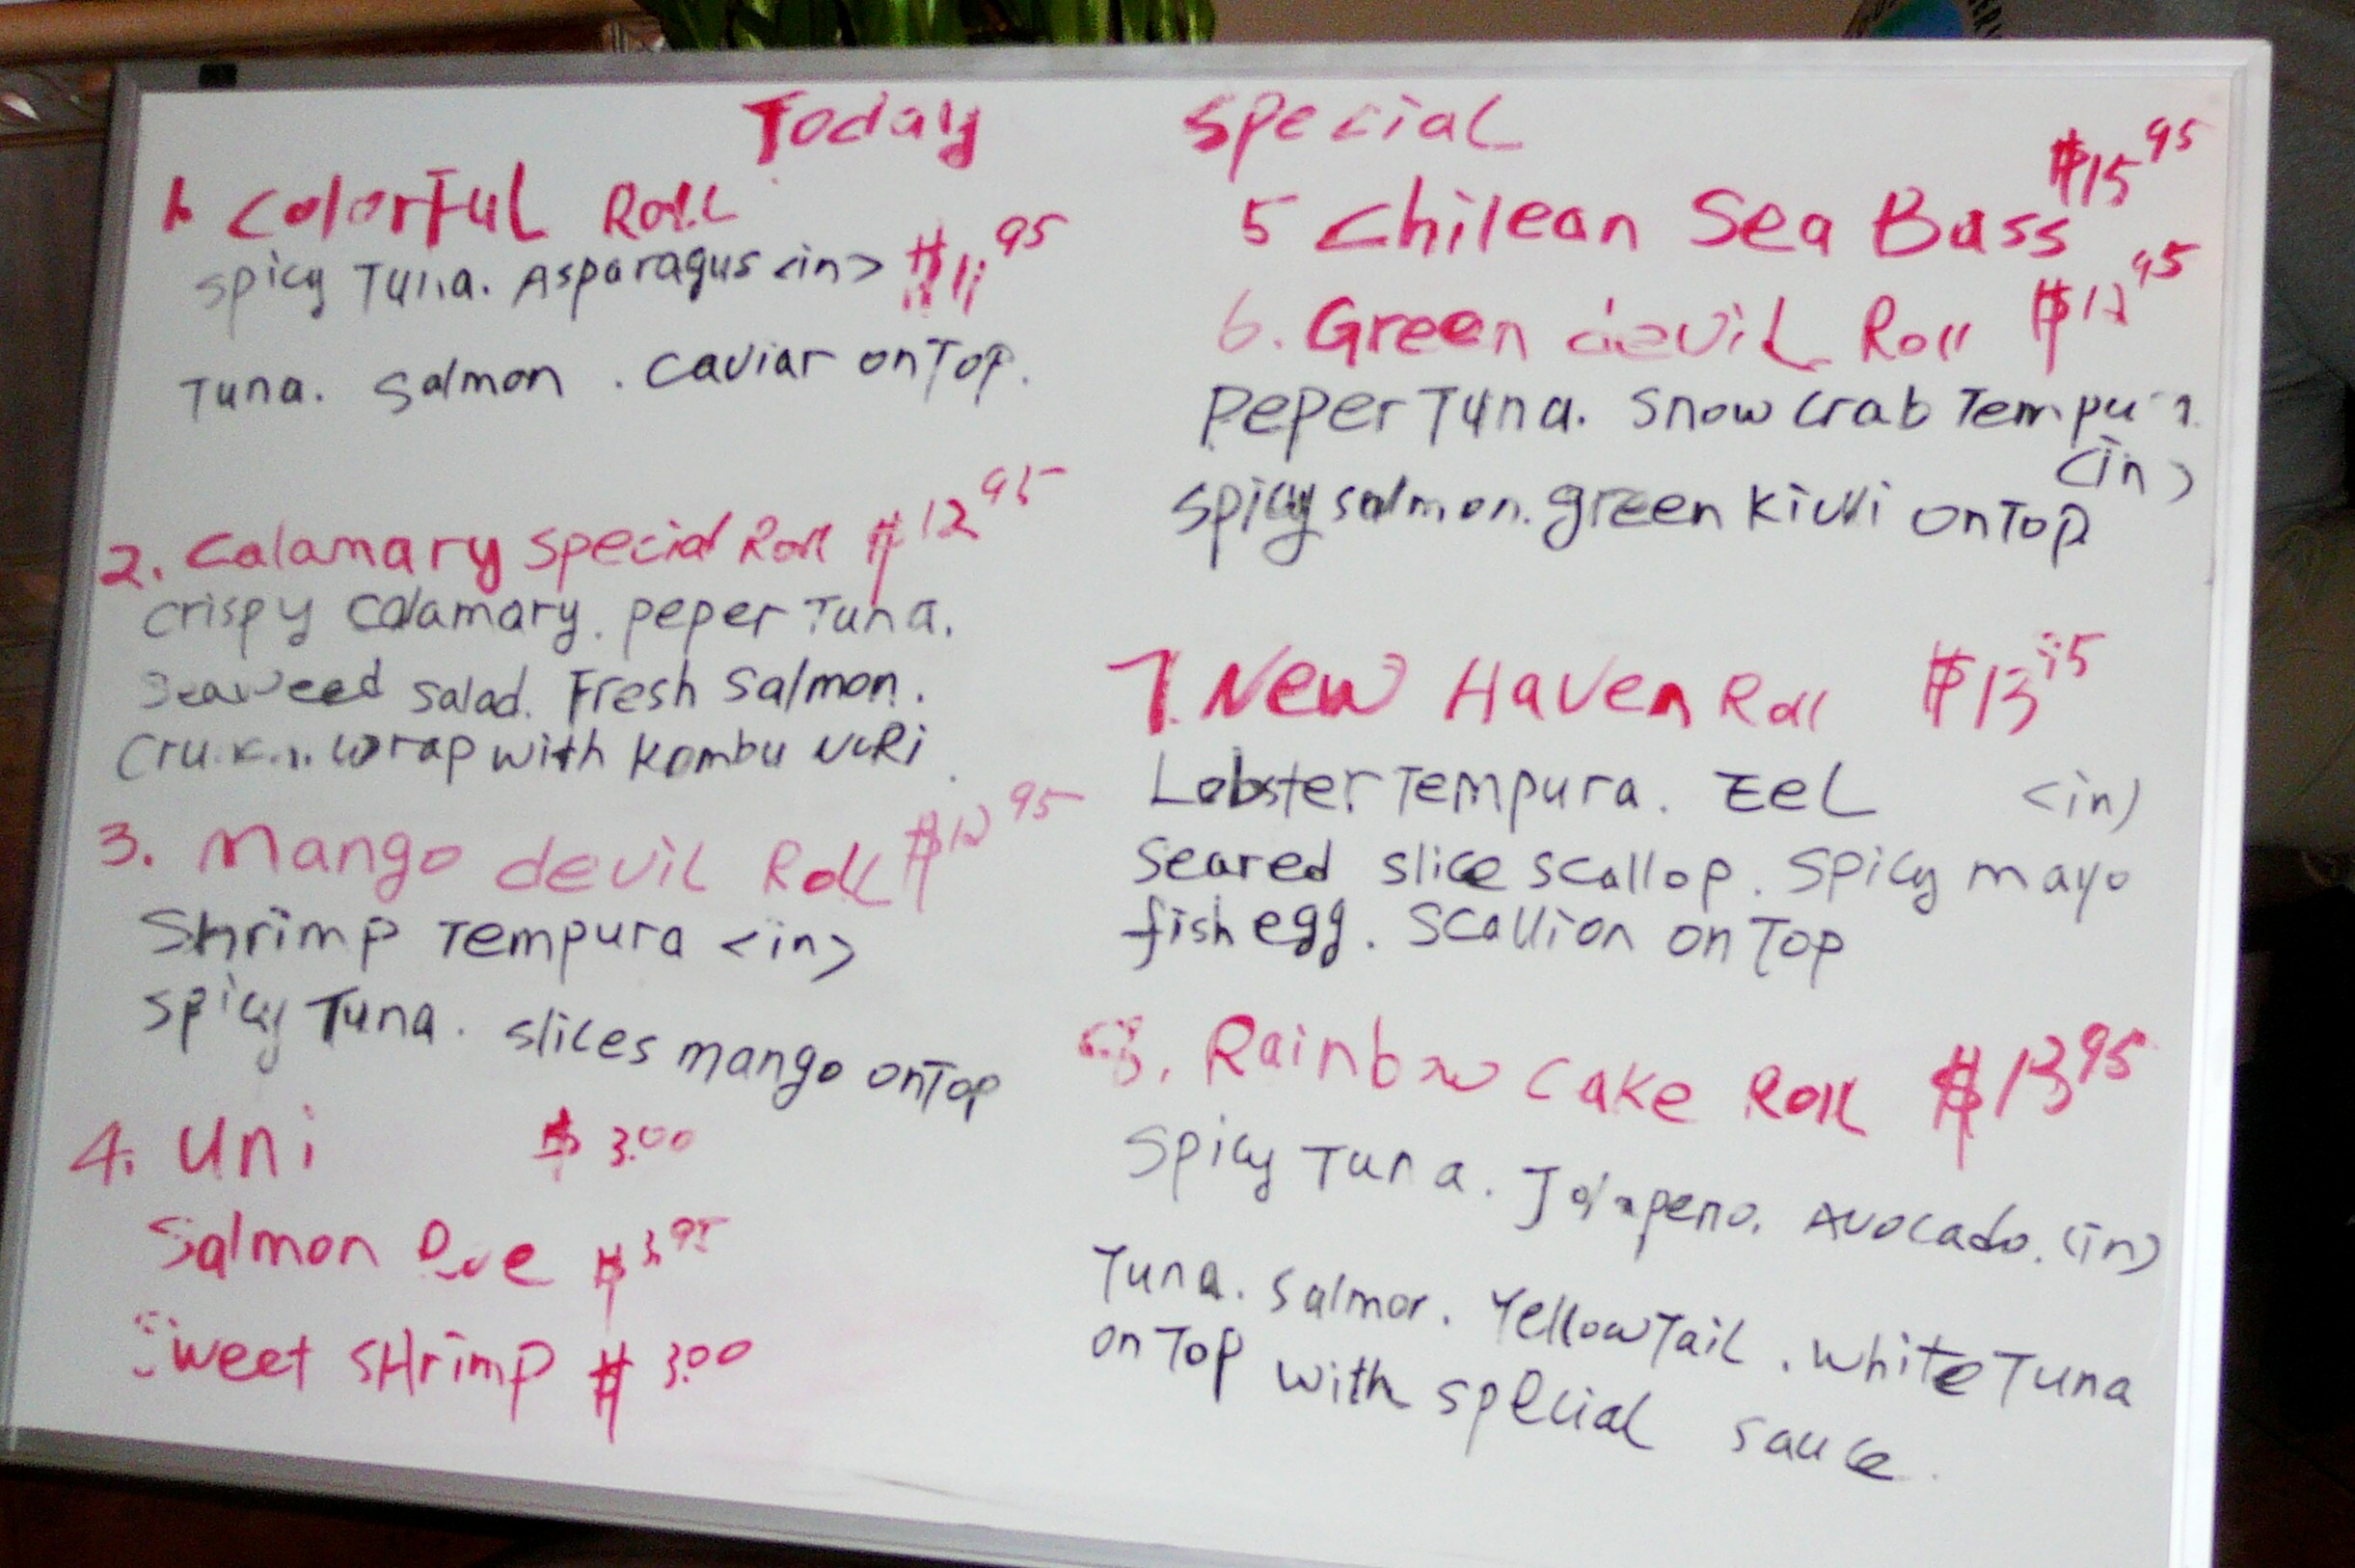 Today Special
1. Colorful Roll
Spicy Tuna. Asparagus <in> $11.95
Tuna. Salmon. Caviar on Top.
2. Calamary Special Roll $12.95
Crispy Calamary. peper Tuna.
Seaweed salad. Fresh Salmon.
wrap with Kombu NORi
3. Mango devil Roll $12.95
Shrimp Tempura <in>
Spicy Tuna. slices mango on Top
4. Uni $3.00
Salmon Roe $3.95
Sweet SHrimp $3.00
5 Chilean Sea Bass $15.95
6. Green devil Roll $12.95
Peper Tuna. Snow Crab Tempura
<in>
Spicy salmon. green Kiwi on Top
7. New Haven Roll $13.95
Lobster Tempura. Eel <in>
Seared slice scallop. Spicy mayo
fish egg. Scallion on Top
8. Rainbow Cake Roll $13.95
Spicy Tuna. Jalapeno. Avocado. <in>
Tuna. Salmon. Yellow Tail. White Tuna
on Top with special sauce.